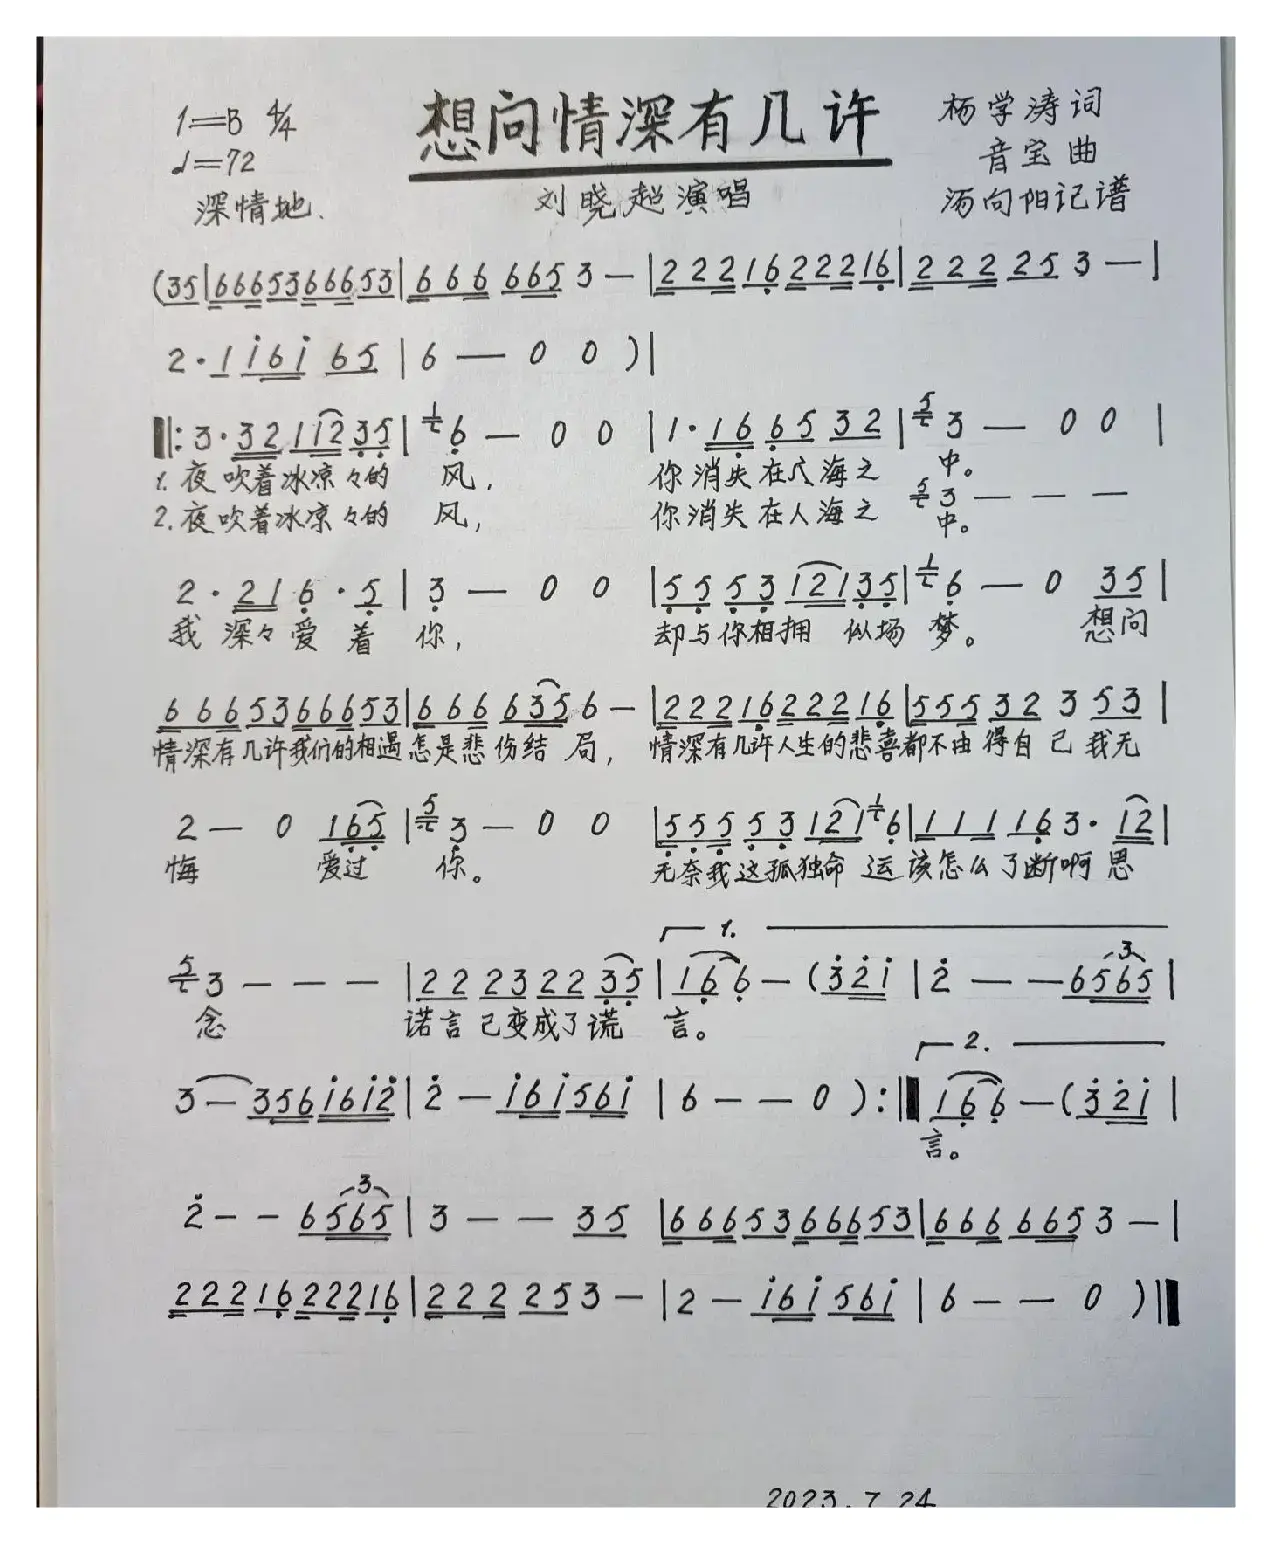 1=B 4/4
想问情深有几许
杨学涛词
♩=72
音宝曲
深情地.
刘晓超演唱
汤向阳记谱
(35|6665366653|666 665 3 —|2221622216|222 225 3 —|
2·1i6i 65|6 — 0 0)|
‖:3·3211235|6 — 0 0|1·16 65 32|3 — 0 0|
1.夜吹着冰凉々的 风, 你消失在人海之 中。
5 3 — — —
2.夜吹着冰凉々的 风, 你消失在人海之 中。
2·216·5|3 — 0 0|5553 12135|6 — 0 35|
我深々爱着 你, 却与你相拥 似场 梦。 想问
6665366653|666 6356 —|2221622216|55532 3 53|
情深有几许我们的相遇怎是悲伤结局, 情深有几许人生的悲喜都不由得自己 我无
2 — 0 165|3 — 0 0|55553 1216|11116 3·12|
悔 爱过 你。 无奈我这孤独命 运该怎么了断啊 思
1.
5 3 — — —|222322 35|166 — (32i|2 — — 6565|
3
念 诺言已变成了谎 言。
2.
3 — 356i6i2|2 — i6i56i|6 — — 0):‖166 — (32i|
言。
3
2 — — 6565|3 — — 35|6665366653|666 665 3 —|
2221622216|222 25 3 —|2 — i6i 56i|6 — — 0)‖
2023.7.24